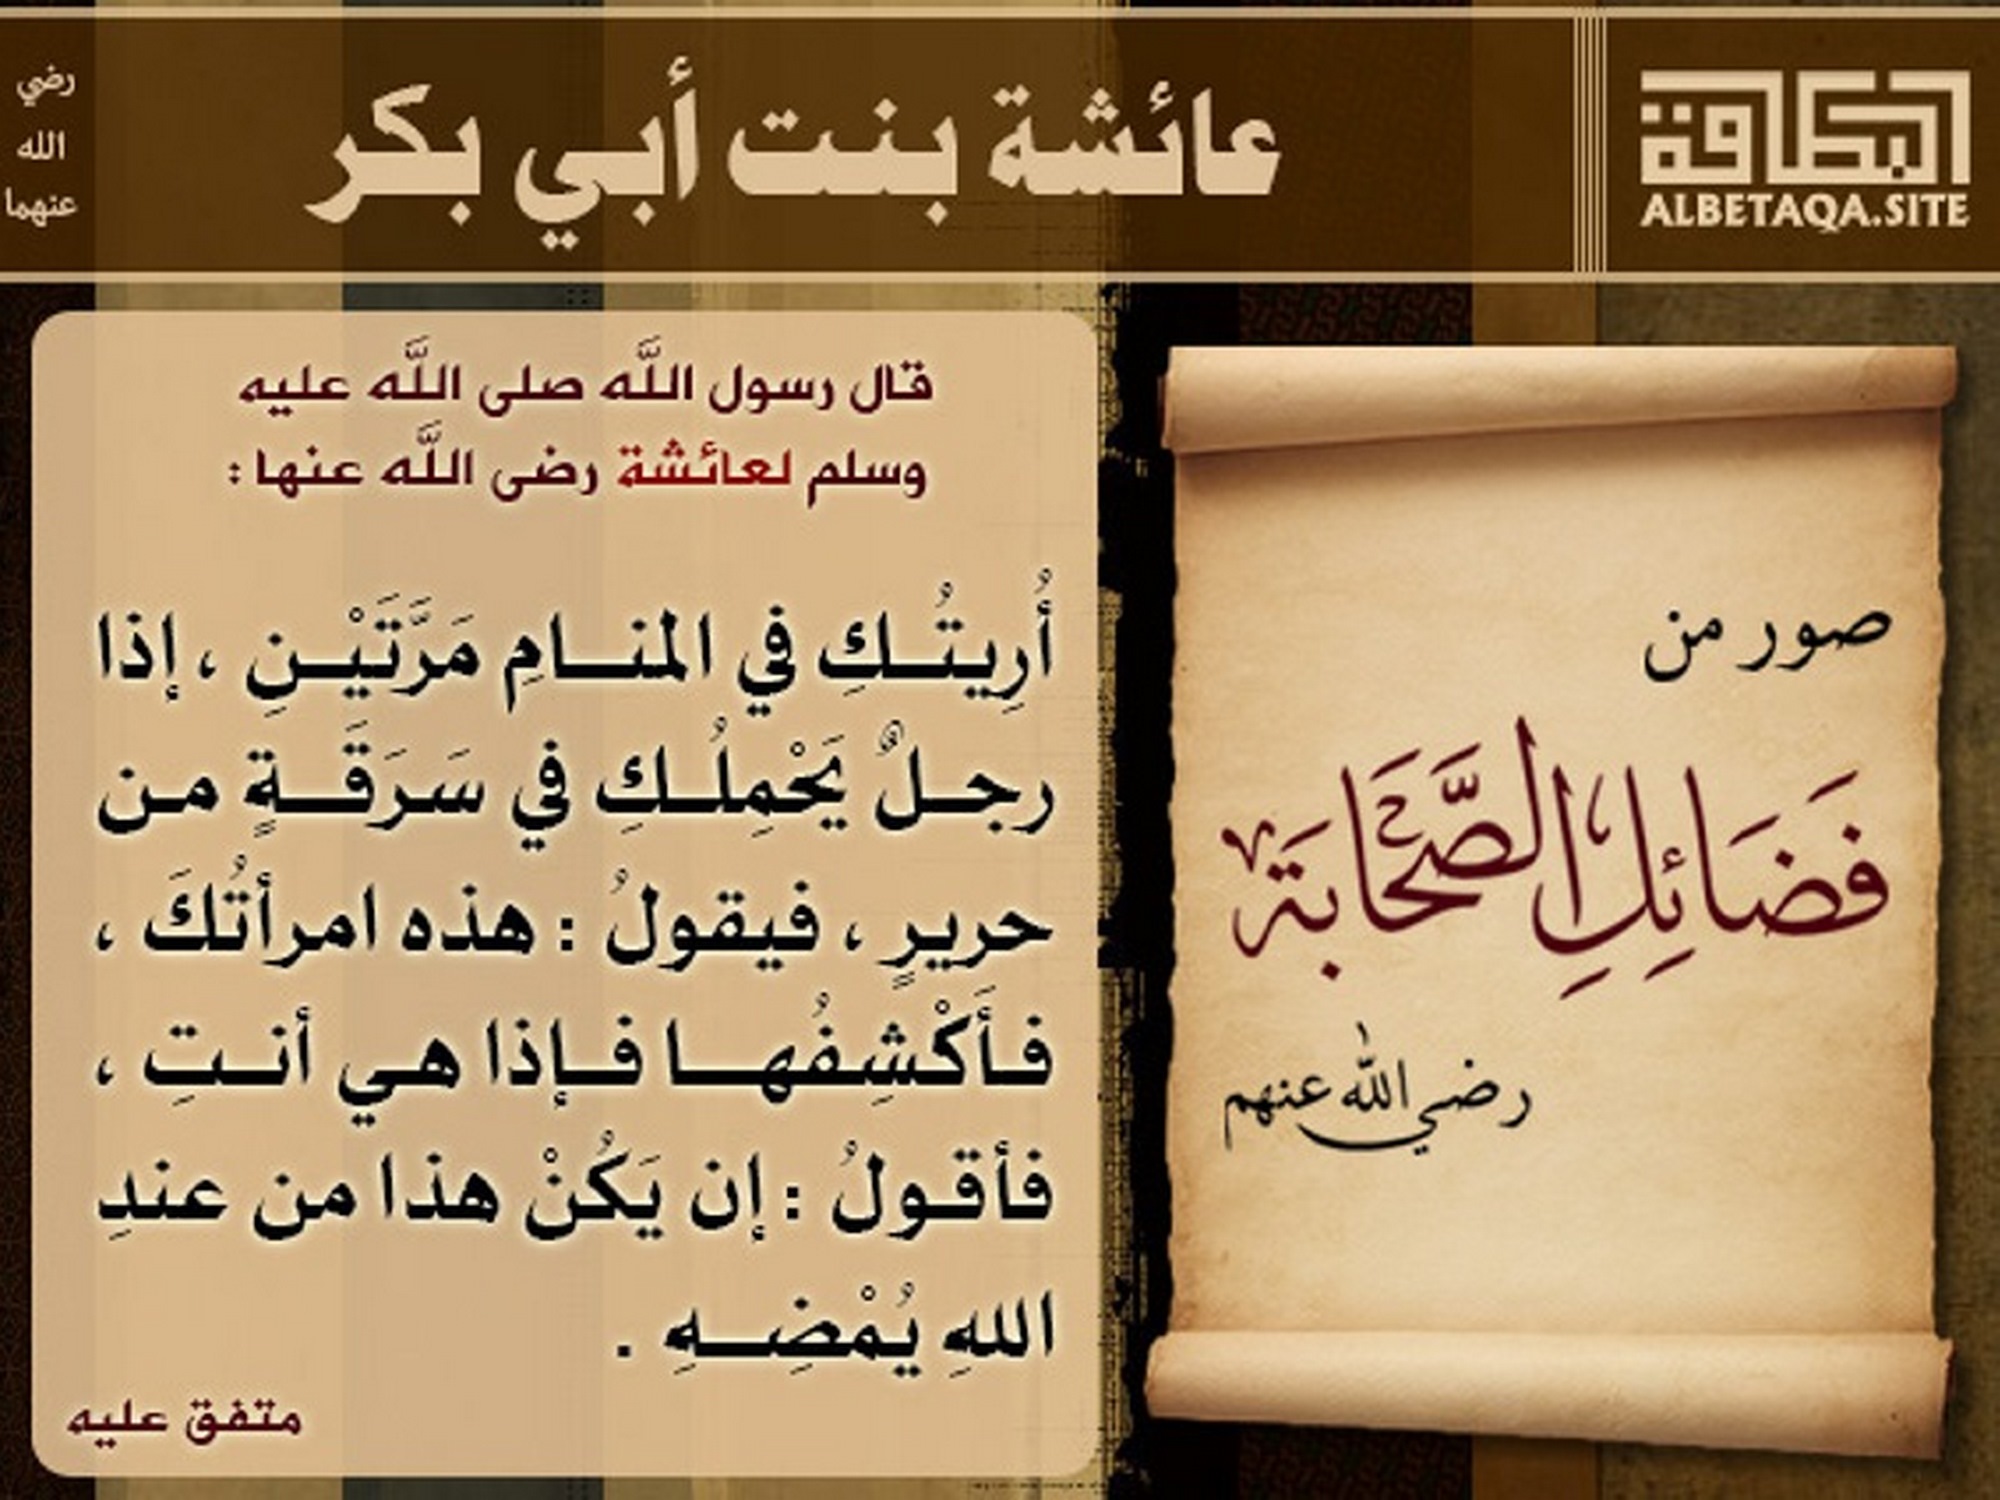 البطاقة
ALBETAQA.SITE
عائشة بنت أبي بكر
رضي
الله
عنهما
صور من
فَضَائِلِ الصَّحَابَة
رضي الله عنهم
قال رسول اللَّه صلى اللَّه عليه
وسلم لعائشة رضى اللَّه عنها :
أُرِيتُـكِ في المنـامِ مَرَّتَيْـنِ ، إذا
رجـلٌ يَحْمِلُـكِ في سَرَقَـةٍ من
حريرٍ ، فيقولُ : هذه امرأتُكَ ،
فـأَكْشِفُهـا فـإذا هي أنـتِ ،
فأقـولُ : إن يَكُنْ هذا من عندِ
اللهِ يُمْضِـهِ .
متفق عليه